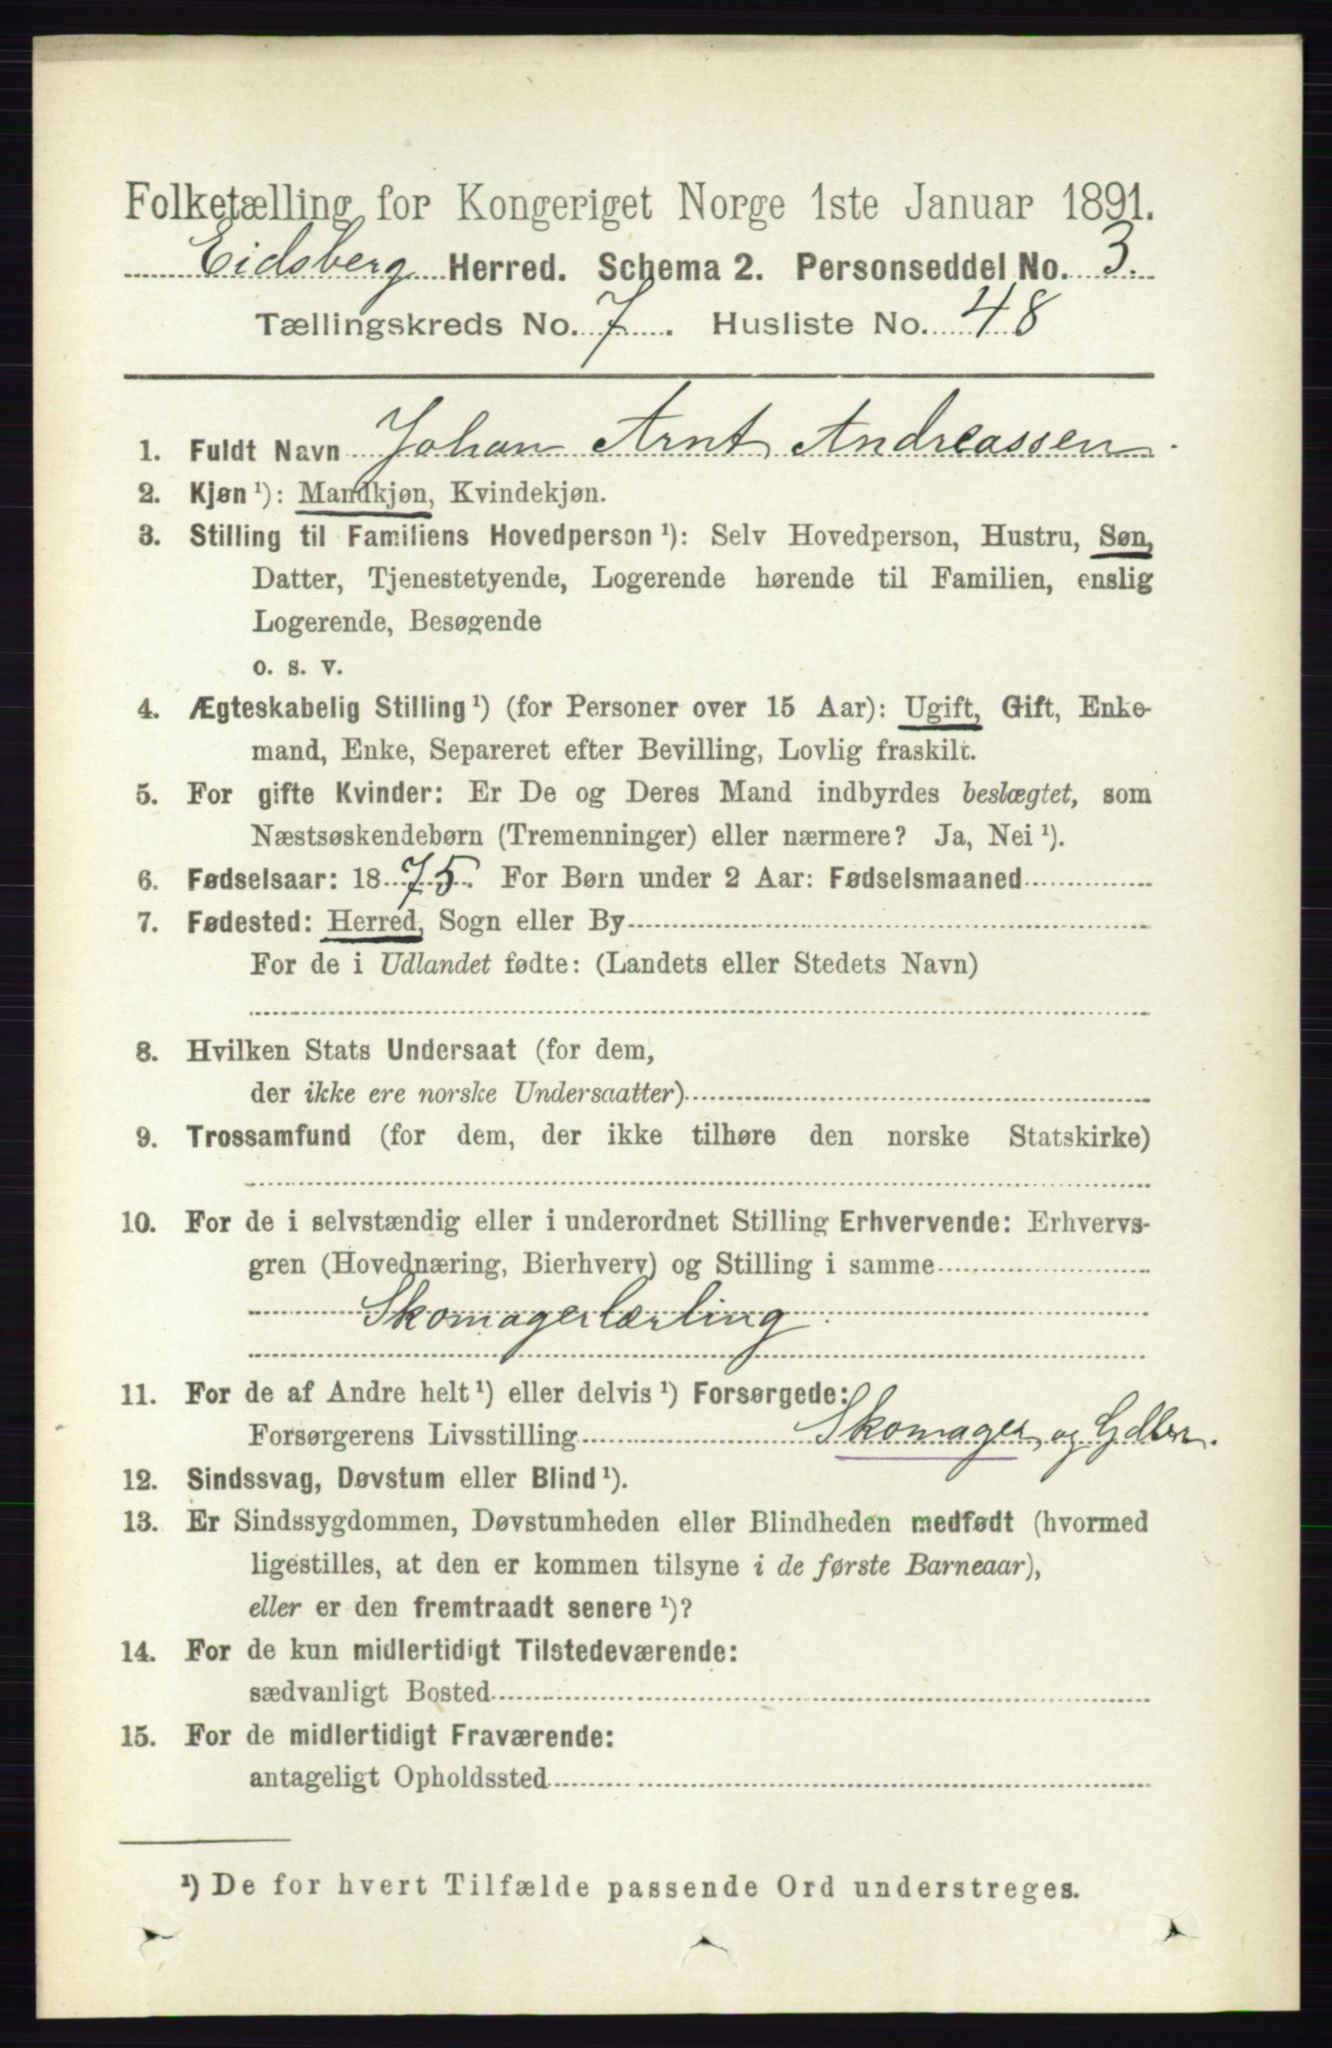 Folketælling for Kongeriget Norge 1ste Januar 1891.
Eidsberg Herred. Schema 2. Personseddel No. 3.
Tællingskreds No. 7. Husliste No. 48
1. Fuldt Navn Johan Arnt Andreassen.
2. Kjøn ¹): Mandkjøn, Kvindekjøn.
3. Stilling til Familiens Hovedperson ¹): Selv Hovedperson, Hustru, Søn,
Datter, Tjenestetyende, Logerende hørende til Familien, enslig
Logerende, Besøgende
o. s. v.
4. Ægteskabelig Stilling ¹) (for Personer over 15 Aar): Ugift, Gift, Enke-
mand, Enke, Separeret efter Bevilling, Lovlig fraskilt.
5. For gifte Kvinder: Er De og Deres Mand indbyrdes beslægtet, som
Næstsøskendebørn (Tremenninger) eller nærmere? Ja, Nei ¹).
6. Fødselsaar: 1875. For Børn under 2 Aar: Fødselsmaaned
7. Fødested: Herred, Sogn eller By
For de i Udlandet fødte: (Landets eller Stedets Navn)
8. Hvilken Stats Undersaat (for dem,
der ikke ere norske Undersaatter)
9. Trossamfund (for dem, der ikke tilhøre den norske Statskirke)
10. For de i selvstændig eller i underordnet Stilling Erhvervende: Erhvervs-
gren (Hovednæring, Bierhverv) og Stilling i samme
Skomagerlærling.
11. For de af Andre helt ¹) eller delvis ¹) Forsørgede:
Forsørgerens Livsstilling Skomager og Gdbr.
12. Sindssvag, Døvstum eller Blind ¹).
13. Er Sindssygdommen, Døvstumheden eller Blindheden medfødt (hvormed
ligestilles, at den er kommen tilsyne i de første Barneaar),
eller er den fremtraadt senere ¹)?
14. For de kun midlertidigt Tilstedeværende:
sædvanligt Bosted
15. For de midlertidigt Fraværende:
antageligt Opholdssted
¹) De for hvert Tilfælde passende Ord understreges.